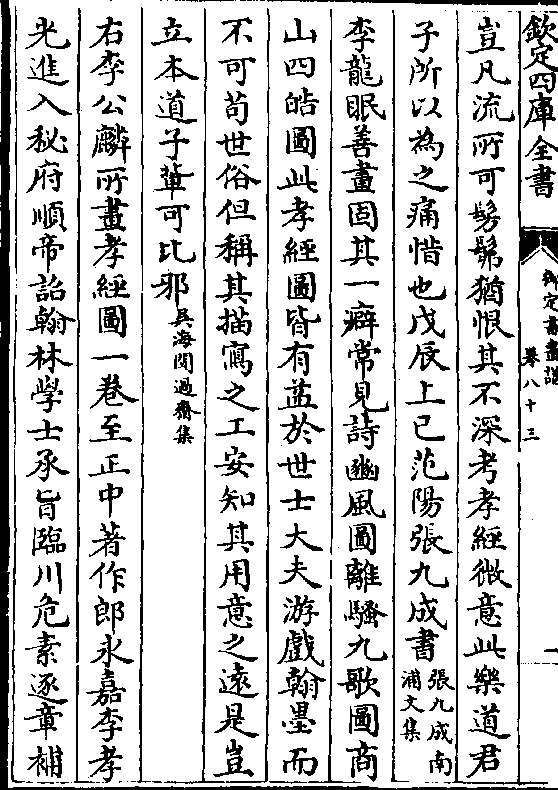 欽定四庫全書
御定書畫譜
卷八十三
豈凡流所可髣髴猶恨其不深考孝經微意此樂道君
子所以為之痛惜也戊辰上巳范陽張九成書張九成南浦文集
李龍眠善畫固其一癖常見詩豳風圖離騷九歌圖商
山四皓圖此孝經圖皆有益於世士大夫游戲翰墨而
不可苟世俗但稱其描寫之工安知其用意之遠是豈
立本道子輩可比邪吳海聞過齋集
右李公麟所畫孝經圖一卷至正中著作郎永嘉李孝
光進入秘府順帝詔翰林學士承旨臨川危素逐章補